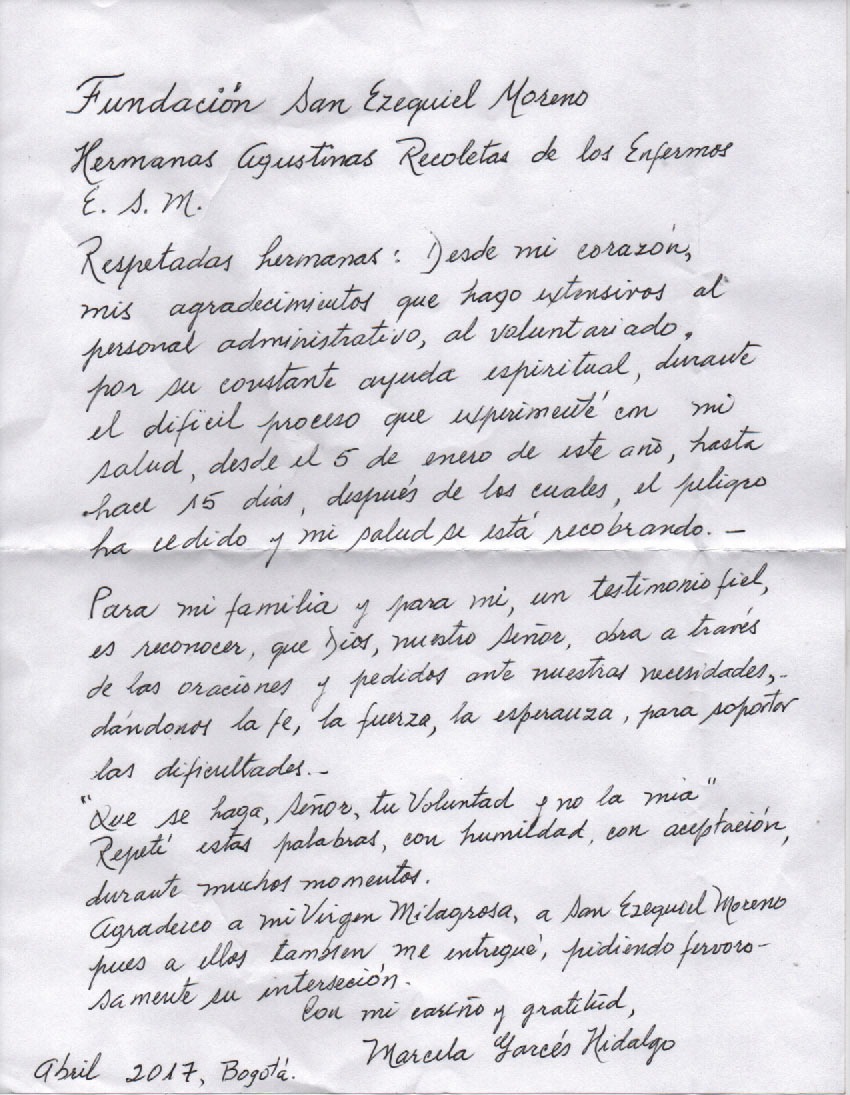 Fundación San Ezequiel Moreno
Hermanas Agustinas Recoletas de los Enfermos
E. S. M.
Respetadas hermanas: Desde mi corazón,
mis agradecimientos que hago extensivos al
personal administrativo, al voluntariado,
por su constante ayuda espiritual, durante
el difícil proceso que experimenté con mi
salud, desde el 5 de enero de este año, hasta
hace 15 días, después de los cuales, el peligro
ha cedido y mi salud se está recobrando. –
Para mi familia y para mi, un testimonio fiel,
es reconocer, que Dios, nuestro Señor, obra a través
de las oraciones y pedidos ante nuestras necesidades,-
dándonos la fe, la fuerza, la esperanza, para soportar
las dificultades. –
"Que se haga, Señor, tu Voluntad y no la mia"
Repeti estas palabras, con humildad, con aceptación,
durante muchos momentos.
Agradezco a mi Virgen Milagrosa, a San Ezequiel Moreno
pues a ellos tambien me entregué, pidiendo fervoro-
samente su interseción.
Con mi cariño y gratitud,
Marcela Garcés Hidalgo
Abril 2017, Bogotá.